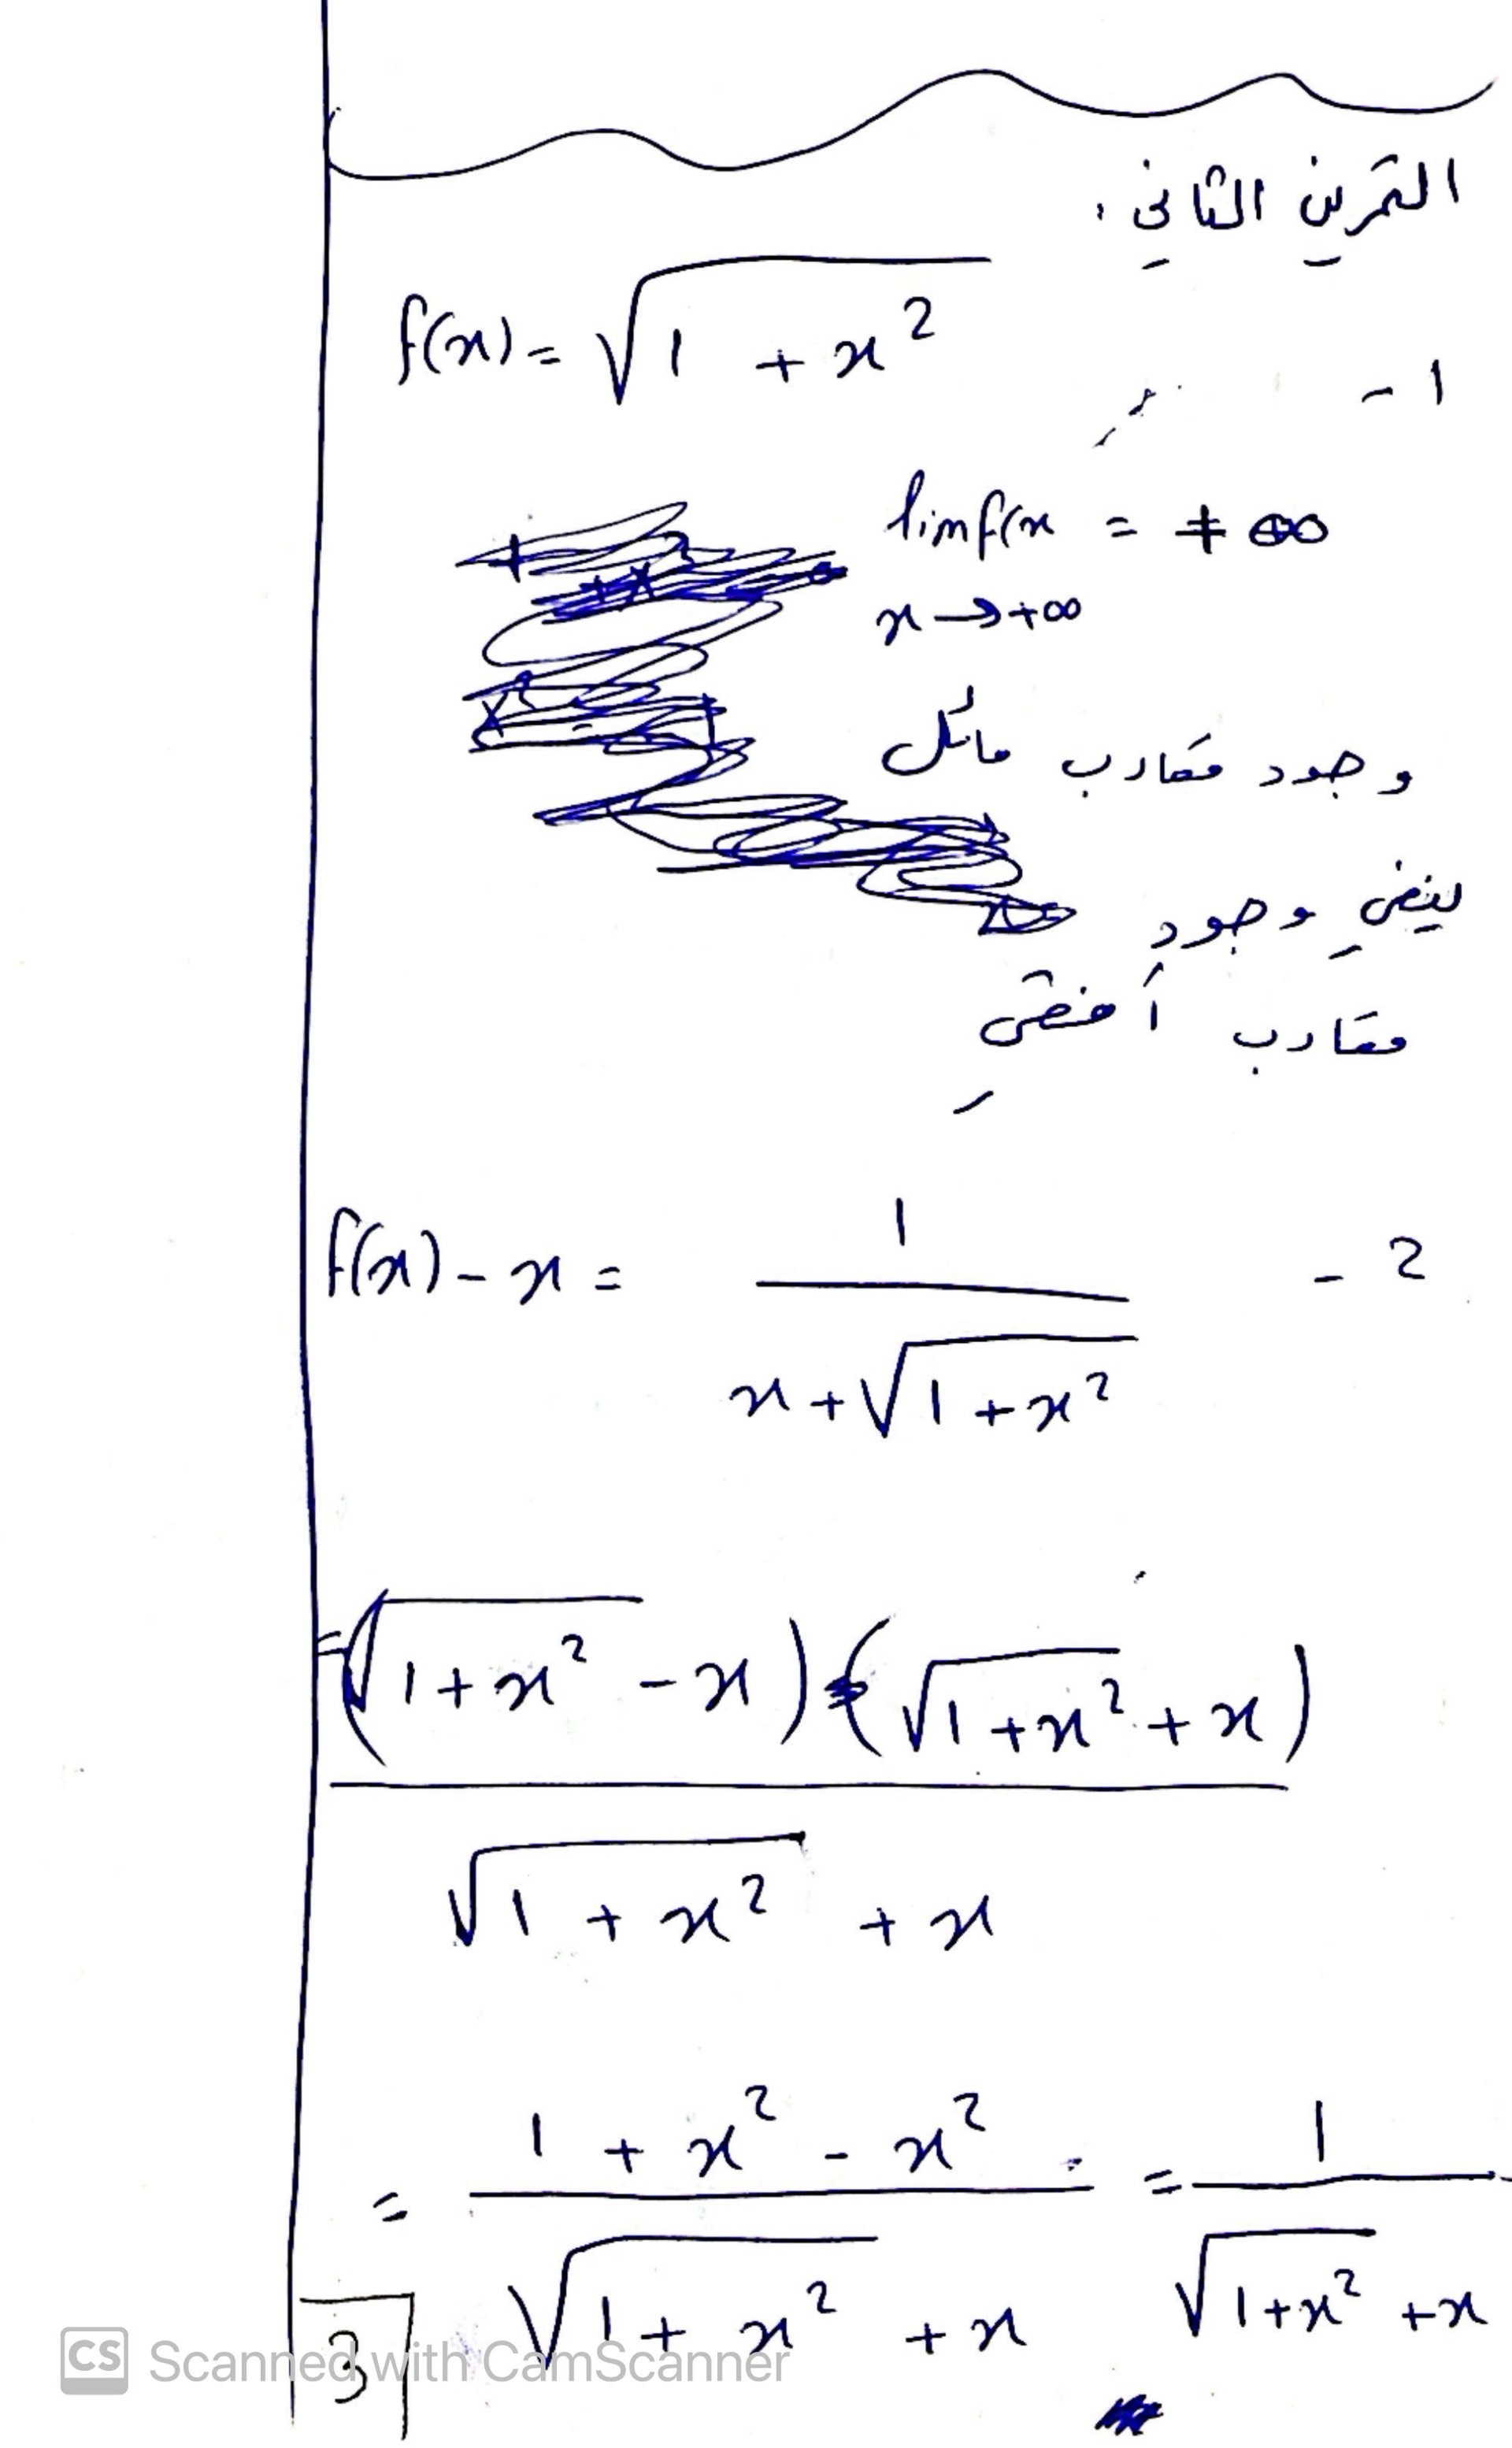 التمرين الثاني :
f(x) = √(1 + x²)
1 -
lim f(x = +∞
x → +∞
وجود مقارب مائل
ينفي وجود
مقارب أفقي
2 -
f(x) - x = 1 / (x + √(1 + x²))
= (√(1 + x²) - x)(√(1 + x²) + x) / (√(1 + x²) + x)
= (1 + x² - x²) / (√(1 + x²) + x) = 1 / (√(1 + x²) + x)
3
CS Scanned with CamScanner